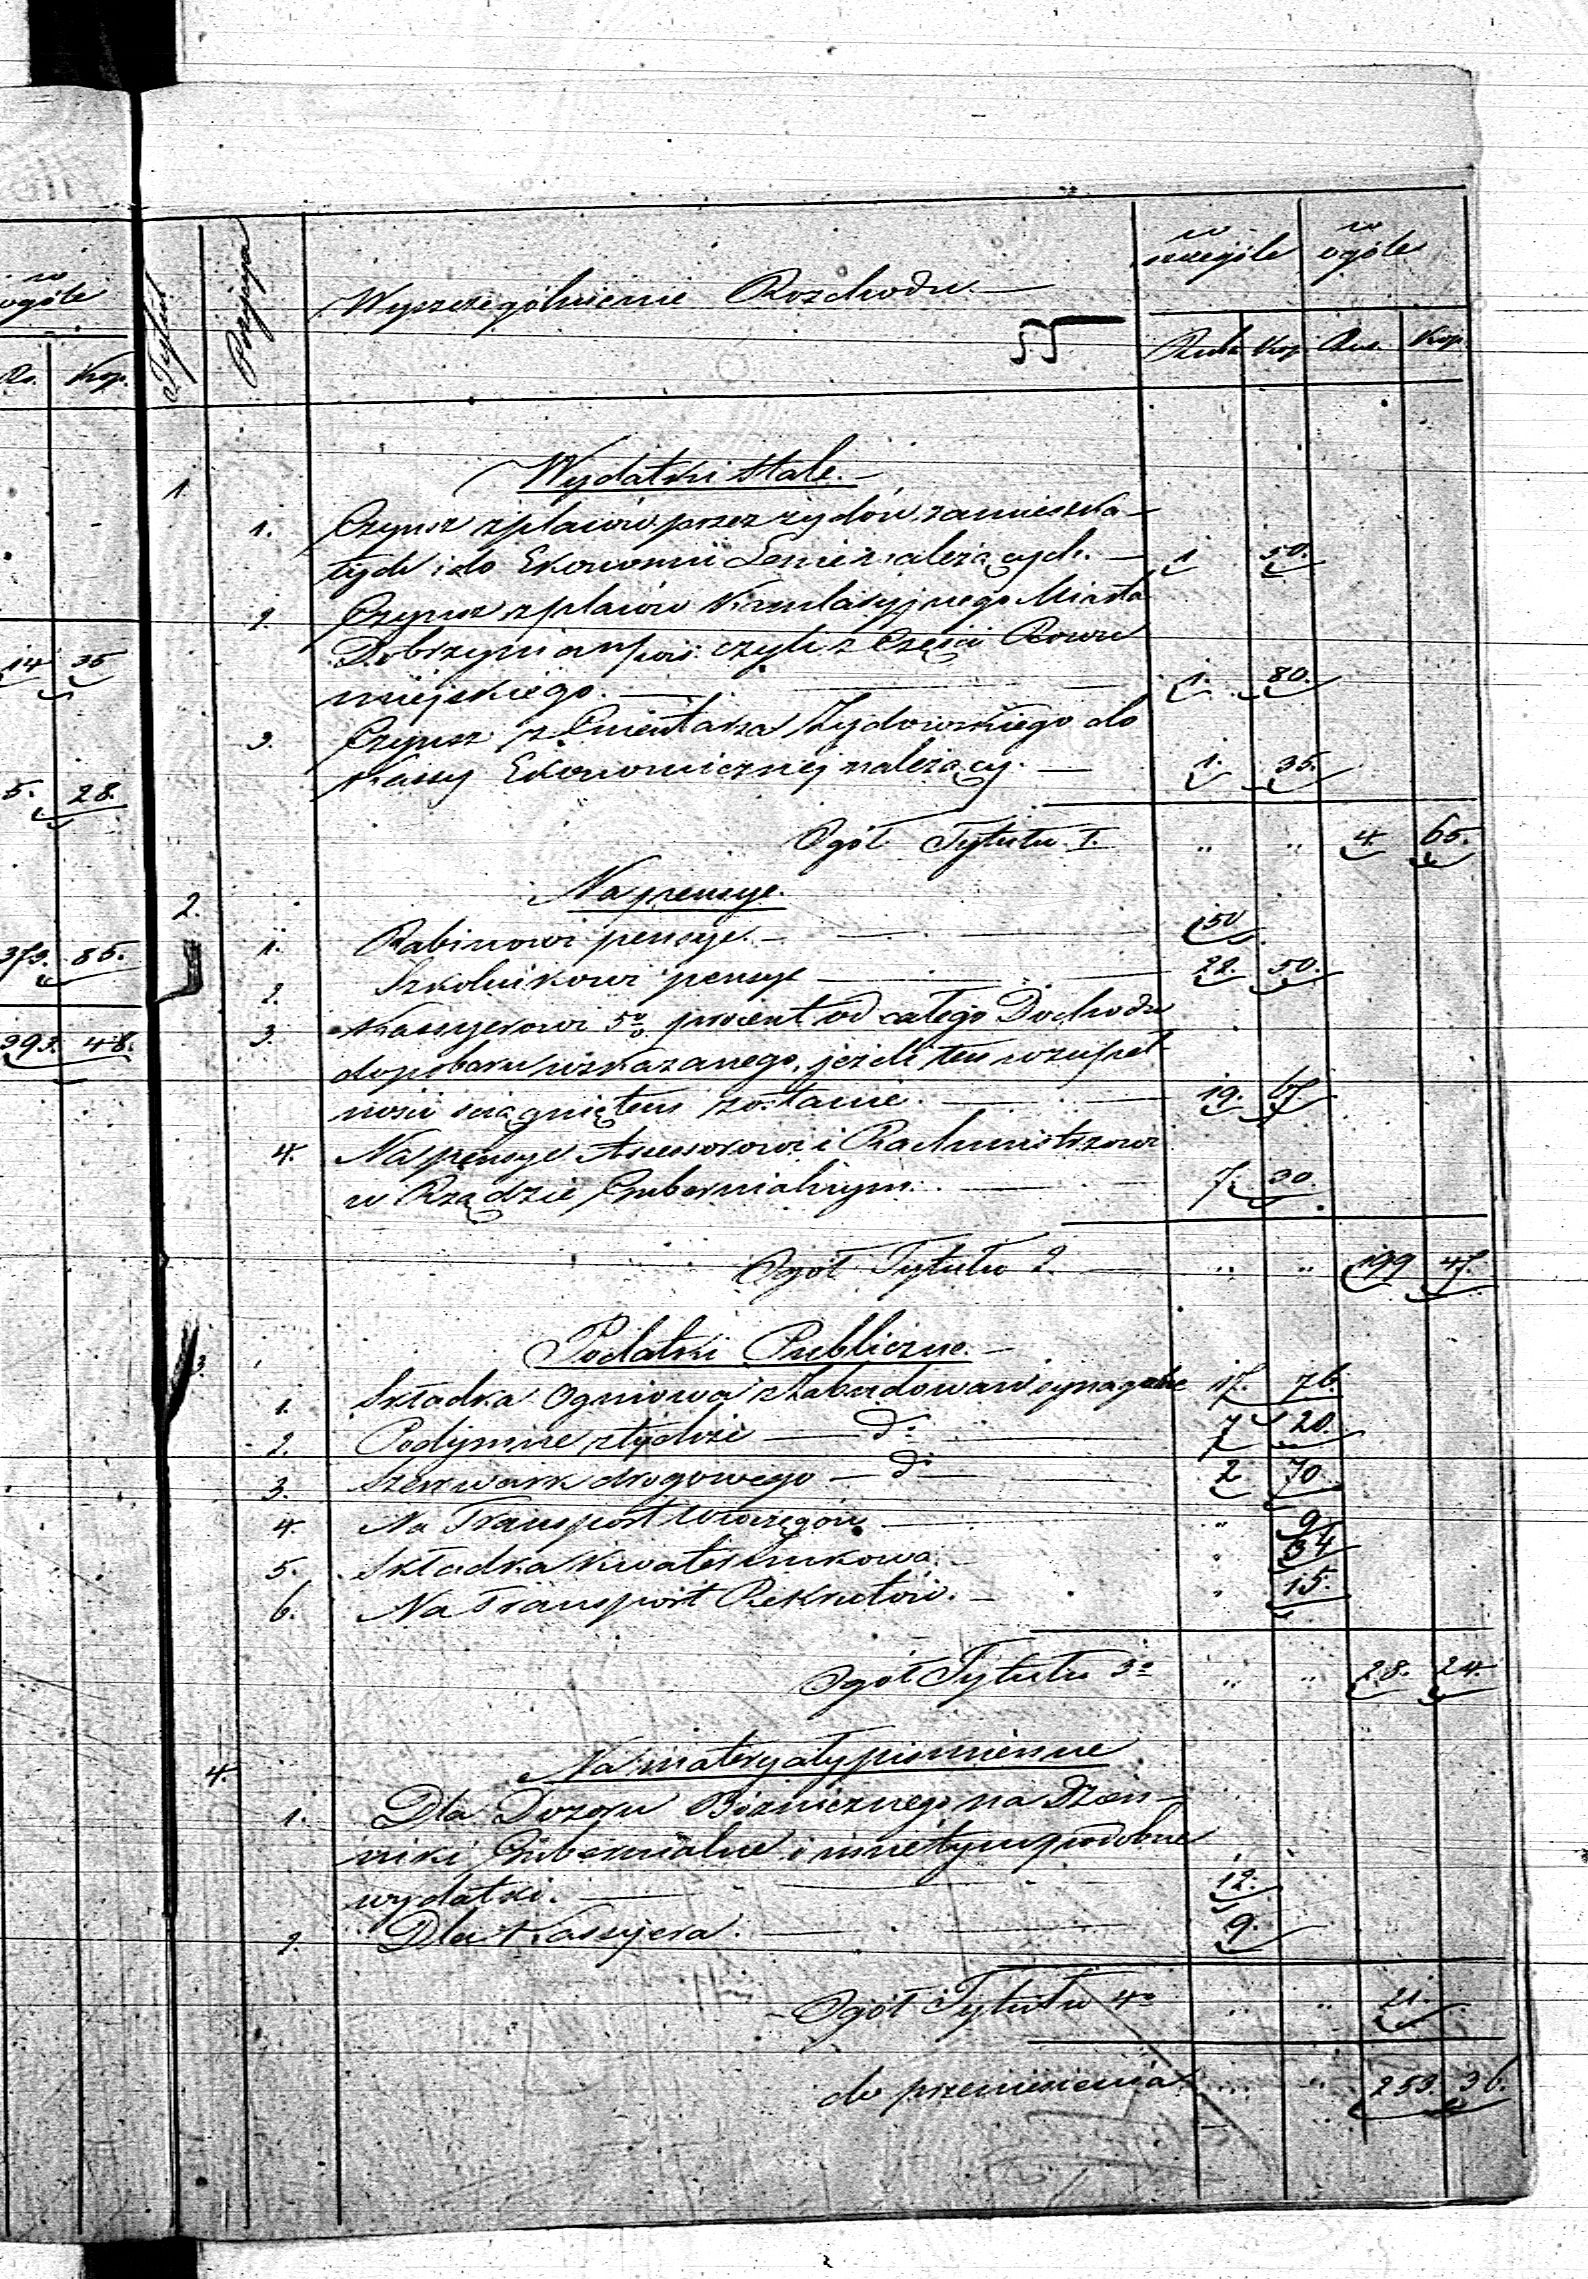 w ogóle
Rs. Kop.
14 35
5. 28.
373. 85.
393. 48.
Tytuł Pozycja Wyszczególnienie Rozchodu. w szczególe w ogóle
55
Rub. Kop. Rub. Kop.
1. Wydatki stałe.
1. Czynsz z placów przez żydów zamieszka-
łych i do Ekonomii należących. 1 50.
2. Czynsz z placów Miasta
Dobrzynia czyli z Części Rowu
miejskiego. 1. 80.
3. Czynsz z Cmentarza Żydowskiego do
Kassy Ekonomicznej należący. 1. 35.
Ogół Tytułu I. " " 4. 65.
2. Na pensye.
1. Rabinowi pensye. 150
2. Szkolnikowi pensye 22. 50.
3. Kassyerowi 5% procent od całego Dochodu
do poboru wskazanego, jeżeli ten w zupeł-
ności ściągniętem zostanie. 19. 67
4. Na pensye Assessorowi i Rachmistrzowi
w Rządzie Gubernialnym. 7. 30.
Ogół Tytułu 2. " " 199 47.
3. Podatki Publiczne.
1. Składka Ogniowa z Zabudowań synagogi 17. 76.
2. Podymne z tychże do 7 20.
3. Szarwark drogowego do 2 70
4. Na Transport włóczęgów " 9
5. Składka Kwaterunkowa. " 34
6. Na Transport Rekrutów. " 15.
Ogół Tytułu 3o " " 28. 24.
4. Na materyały piśmienne
1. Dla Dozoru Bóżniczego na Dzien-
niki Gubernialne i inne tym podobne
wydatki. 12.
2. Dla Kassyera. 9.
Ogół Tytułu 4o " " 21.
do przeniesienia " " 253. 36.